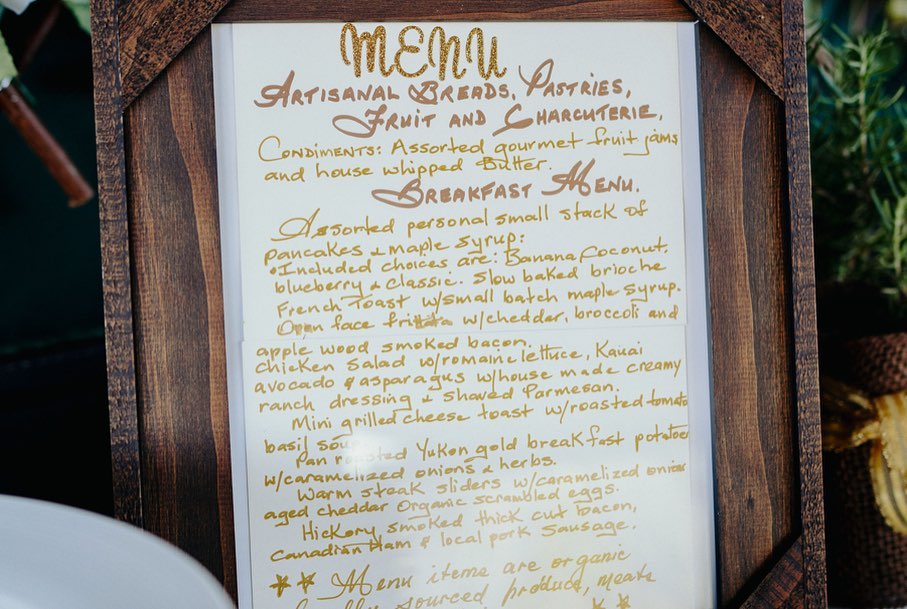 MENU
ARTISANAL BREADS, PASTRIES,
FRUIT AND CHARCUTERIE,
CONDIMENTS: Assorted gourmet fruit jams
and house whipped Butter.
BREAKFAST MENU.
Assorted personal small stack of
pancakes & maple syrup:
•Included choices are: Banana Coconut,
blueberry & classic. Slow baked brioche
French Toast w/small batch maple syrup.
Open face frittata w/cheddar, broccoli and
apple wood smoked bacon.
Chicken Salad w/romaine lettuce, Kauai
avocado & asparagus w/house made creamy
ranch dressing & shaved Parmesan.
Mini grilled cheese toast w/roasted tomato
basil
Pan roasted Yukon gold breakfast potatoes
w/caramelized onions & herbs.
Warm steak sliders w/caramelized onion
aged cheddar Organic scrambled eggs.
Hickory smoked thick cut bacon,
Canadian Ham & local pork sausage.
** Menu items are organic
sourced produce, meats